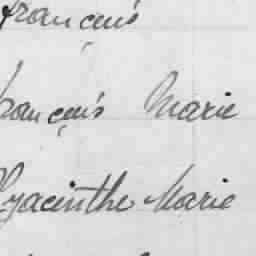 françois
françois Marie
Hyacinthe Marie